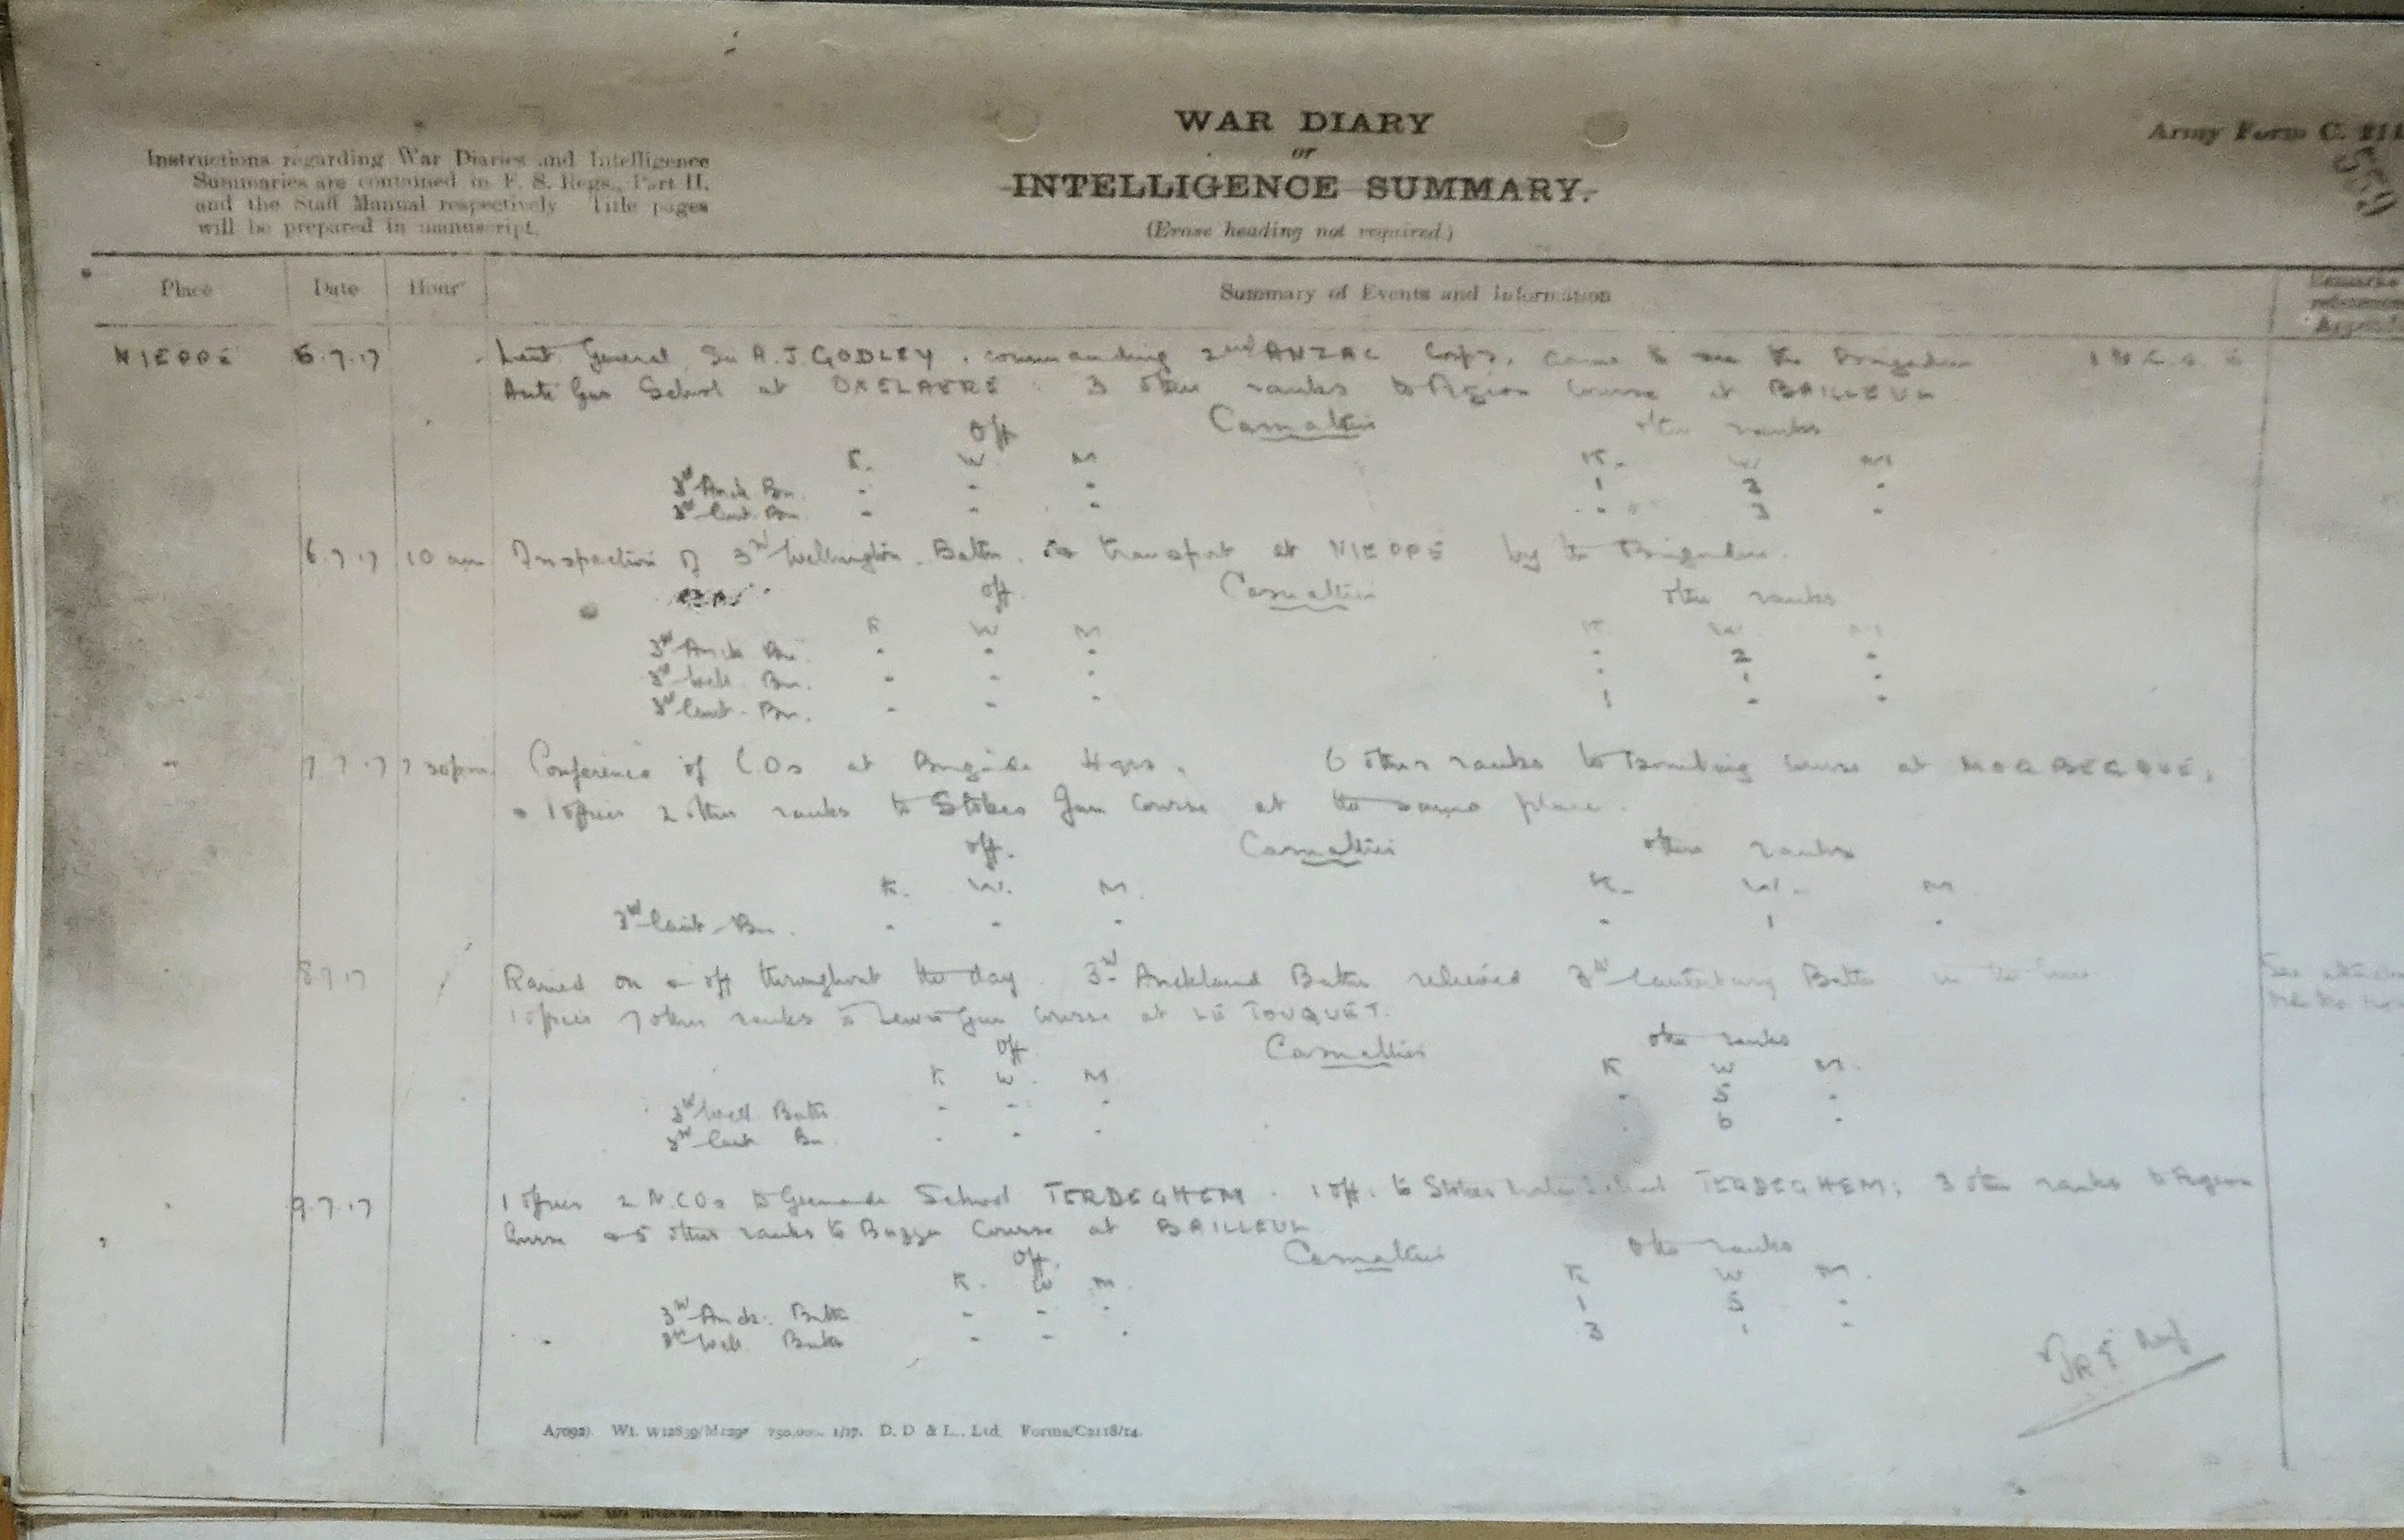 WAR DIARY
or
INTELLIGENCE SUMMARY.
(Erase heading not required.)
Army Form C.
559
Instructions regarding War Diaries and Intelligence
Summaries are contained in F. S. Regs., Part II.
and the Staff Manual respectively Title pages
will be prepared in manuscript.
Place Date Hour Summary of Events and Information
NIEPPE 5.7.17 Lieut. General Sir A.J. GODLEY, commanding 2nd ANZAC Corps, came to see the Brigadier
Anti Gas School at OXELAERE 3 other ranks to Pigeon Course at BAILLEUL
Off Casualties other ranks
K. W M K. W M
3rd Auck Bn. - - - 1 3 -
3rd Cant. Bn - - - - 3 -
6.7.17 10 am Inspection of 3rd Wellington Battn. transport at NIEPPE by the Brigadier.
off. Casualties other ranks
K W M K W M
3rd Auck Bn. - - - - 2 -
3rd Well. Bn. - - - - 1 -
3rd Cant. Bn. - - - 1 - -
" 7.7.17 7 30pm Conference of COs at Brigade Hqrs. 6 other ranks to bombing course at MORBECQUE,
1 officer 2 other ranks to Stokes Gun Course at the same place.
off. Casualties other ranks
K. W. M. K. W. M
3rd Cant. Bn. - - - - 1 -
8.7.17 Rained on & off throughout the day 3rd Auckland Battn relieved 3rd Canterbury Battn in the line
1 officer 7 other ranks to Lewis Gun Course at LE TOUQUET.
Off Casualties other ranks
K W. M K W M.
3rd Well. Battn - - - - 5 -
3rd Cant Bn. - - - - 6 -
9.7.17 1 officer 2 NCOs to Grenade School TERDEGHEM. 1 off. to Stokes School TERDEGHEM; 3 other ranks to Pigeon
Course & 5 other ranks to Buzzer Course at BAILLEUL
Off. Casualties Other ranks
K. W M. K W M.
3rd Auck. Battn - - - 1 5 -
3rd Well. Battn - - - 3 1 -
D. D & L., Ltd. Forms/C2118/14.